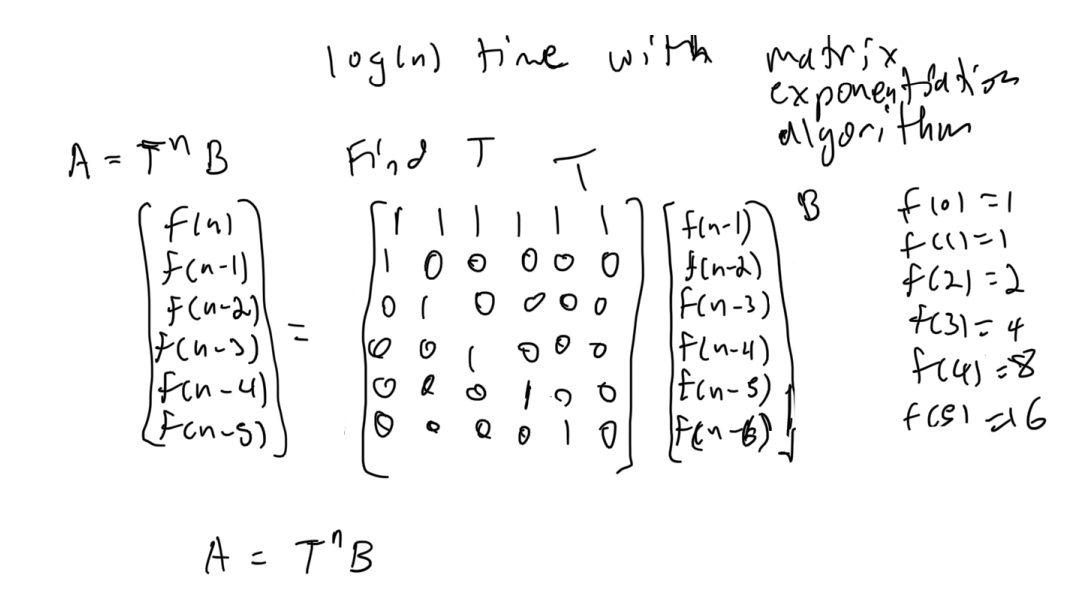 log(n) time with matrix
exponentiation
algorithm
A = Tⁿ B Find T T
[f(n) f(n-1) f(n-2) f(n-3) f(n-4) f(n-5)] =
1 1 1 1 1 1
1 0 0 0 0 0
0 1 0 0 0 0
0 0 1 0 0 0
0 0 0 1 0 0
0 0 0 0 1 0
[f(n-1) f(n-2) f(n-3) f(n-4) f(n-5) f(n-6)] B
f(0) = 1
f(1) = 1
f(2) = 2
f(3) = 4
f(4) = 8
f(5) = 16
A = Tⁿ B